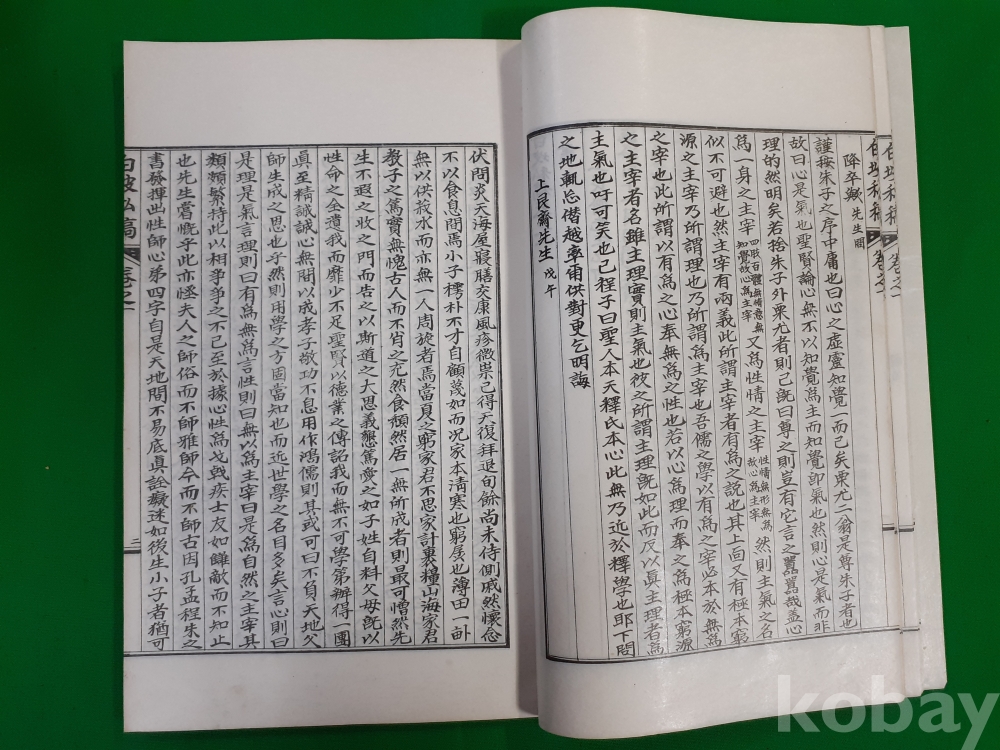 降卒歟 先生問
謹按朱子之序中庸也曰心之虛靈知覺一而已矣栗尤二翁是尊朱子者也
故曰心是氣也聖賢論心無不以知覺爲主而知覺卽氣也然則心是氣而非
理的然明矣若捨朱子外栗尤者則已旣曰尊之則豈有它言之囂囂哉盖心
爲一身之主宰 四肢百體無情意無知覺故心爲主宰 又爲性情之主宰 性情無形無爲故心爲主宰 然則主氣之名
似不可避也然主宰有兩義此所謂主宰者有爲之說也其上面又有極本窮
源之主宰乃所謂理也乃所謂爲主宰也吾儒之學以有爲之宰必本於無爲
之宰也此所謂以有爲之心奉無爲之性也若以心爲理而奉之爲極本窮源
之主宰者名雖主理實則主氣也彼之所謂主理旣如此而反以眞主理者爲
主氣也吁可矣也已程子曰聖人本天釋氏本心此無乃近於釋學也耶下問
之地輒忘僭越率爾供對更乞明誨
上艮齋先生 戊午
伏問炎天海屋寢膳交康風疹微祟已得天復拜退旬餘尙未侍側戚然懷念
不以食息間焉小子樗朴不才自顧蔑如而况家本淸寒也窮居也薄田一畝
無以供菽水而亦無一人周旋者焉當貝之窮家君不思家計裹糧山海家君
敎子之篤實無愧古人而不肖之充然食頹然居一無所成者則最可憎然先
生不遐之收之門而告之以斯道之大思義懇篤愛之如子姓自料父母旣以
性命之全遺我而靡少不足聖賢以德業之傳詔我而無不可學第辦得一團
眞至精誠誠心無間以成孝子敬功不息用作鴻儒則其或可曰不負天地父
師生成之思也乎然則用學之方固當知也而近世學之名目多矣言心則曰
是理是氣言理則曰有爲無爲言性則曰無以爲主宰曰是爲自然之主宰其
類頗繁持此以相爭爭之不已至於據心性爲戈戟疾士友如讎敵而不知止
也先生嘗慨乎此亦恠夫人之師俗而不師雅師今而不師古因孔孟程朱之
書發揮出性師心弟四字自是天地間不易底眞詮癡迷如後生小子者猶可
白坡私稿 卷之一 三